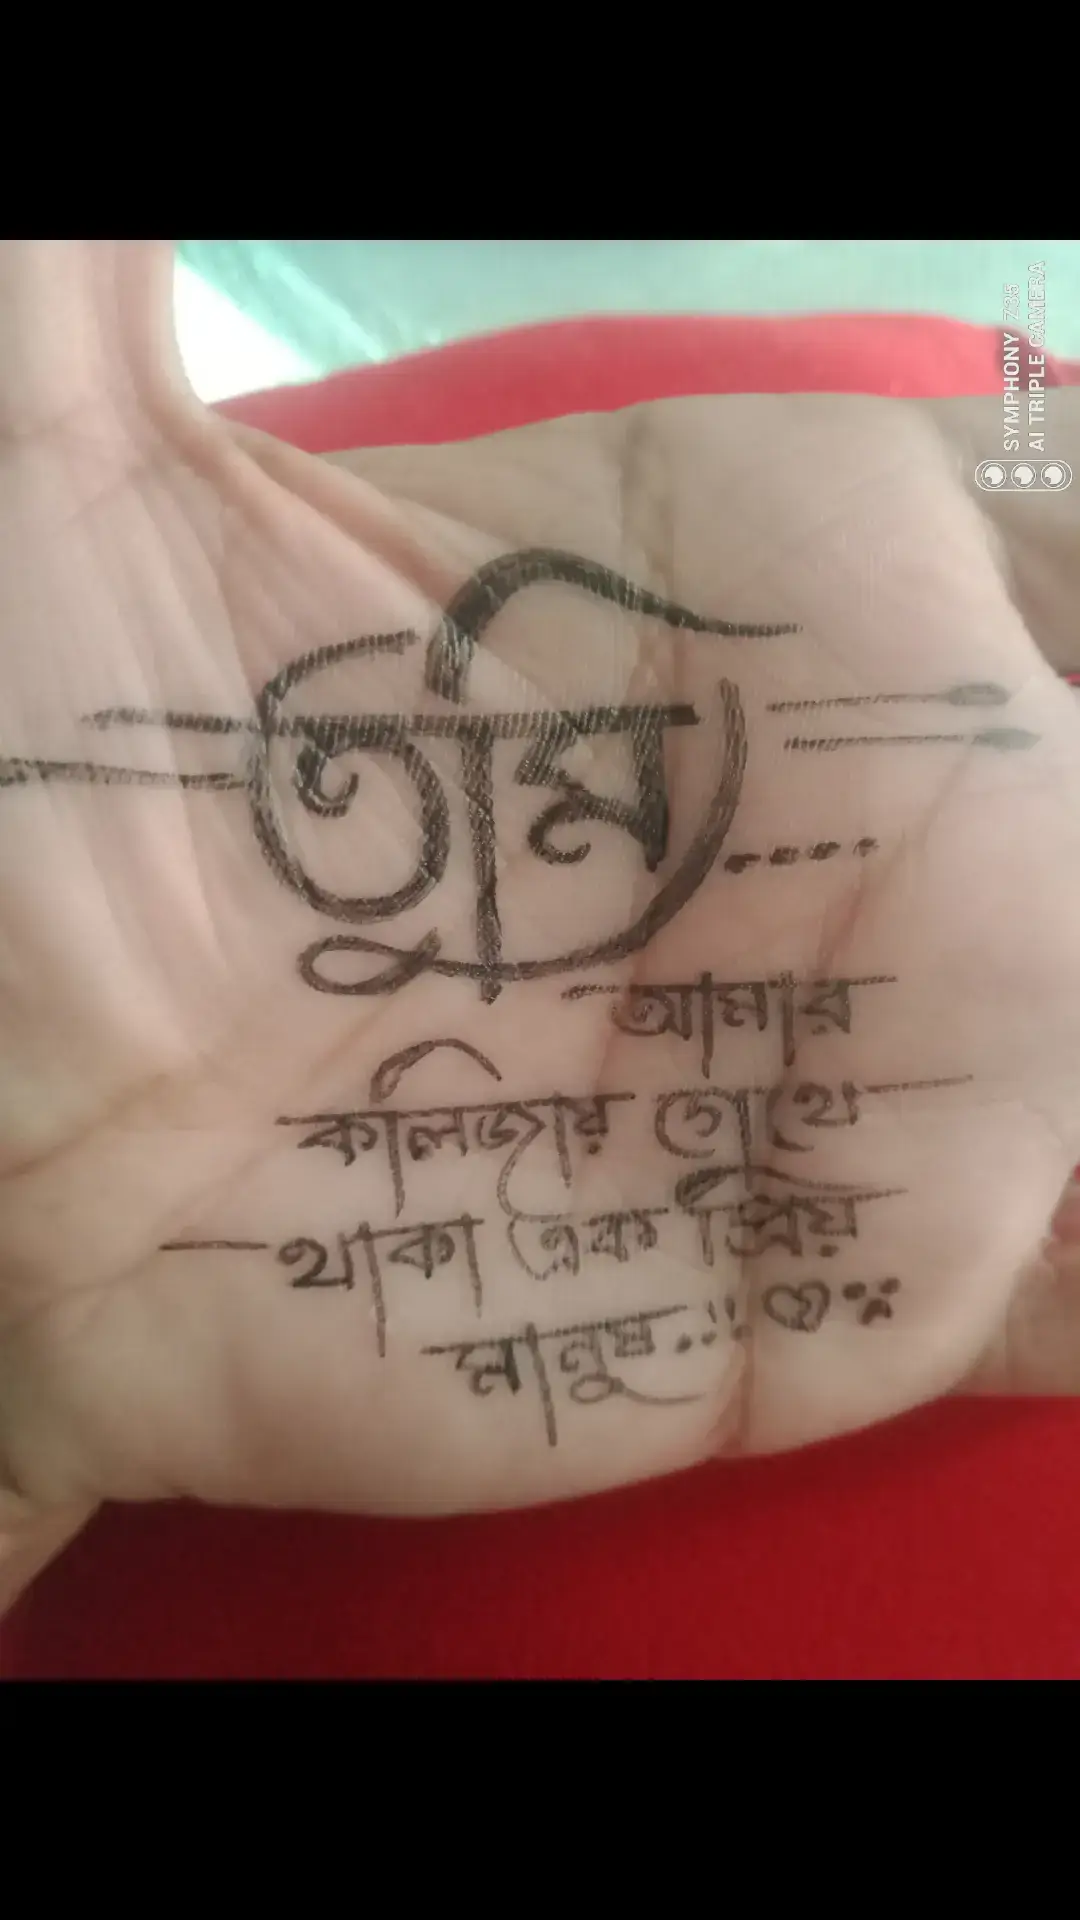 তুমি ....
আমার
কলিজায় গেথে
থাকা এক প্রিয়
মানুষ..!!
SYMPHONY Z35
AI TRIPLE CAMERA